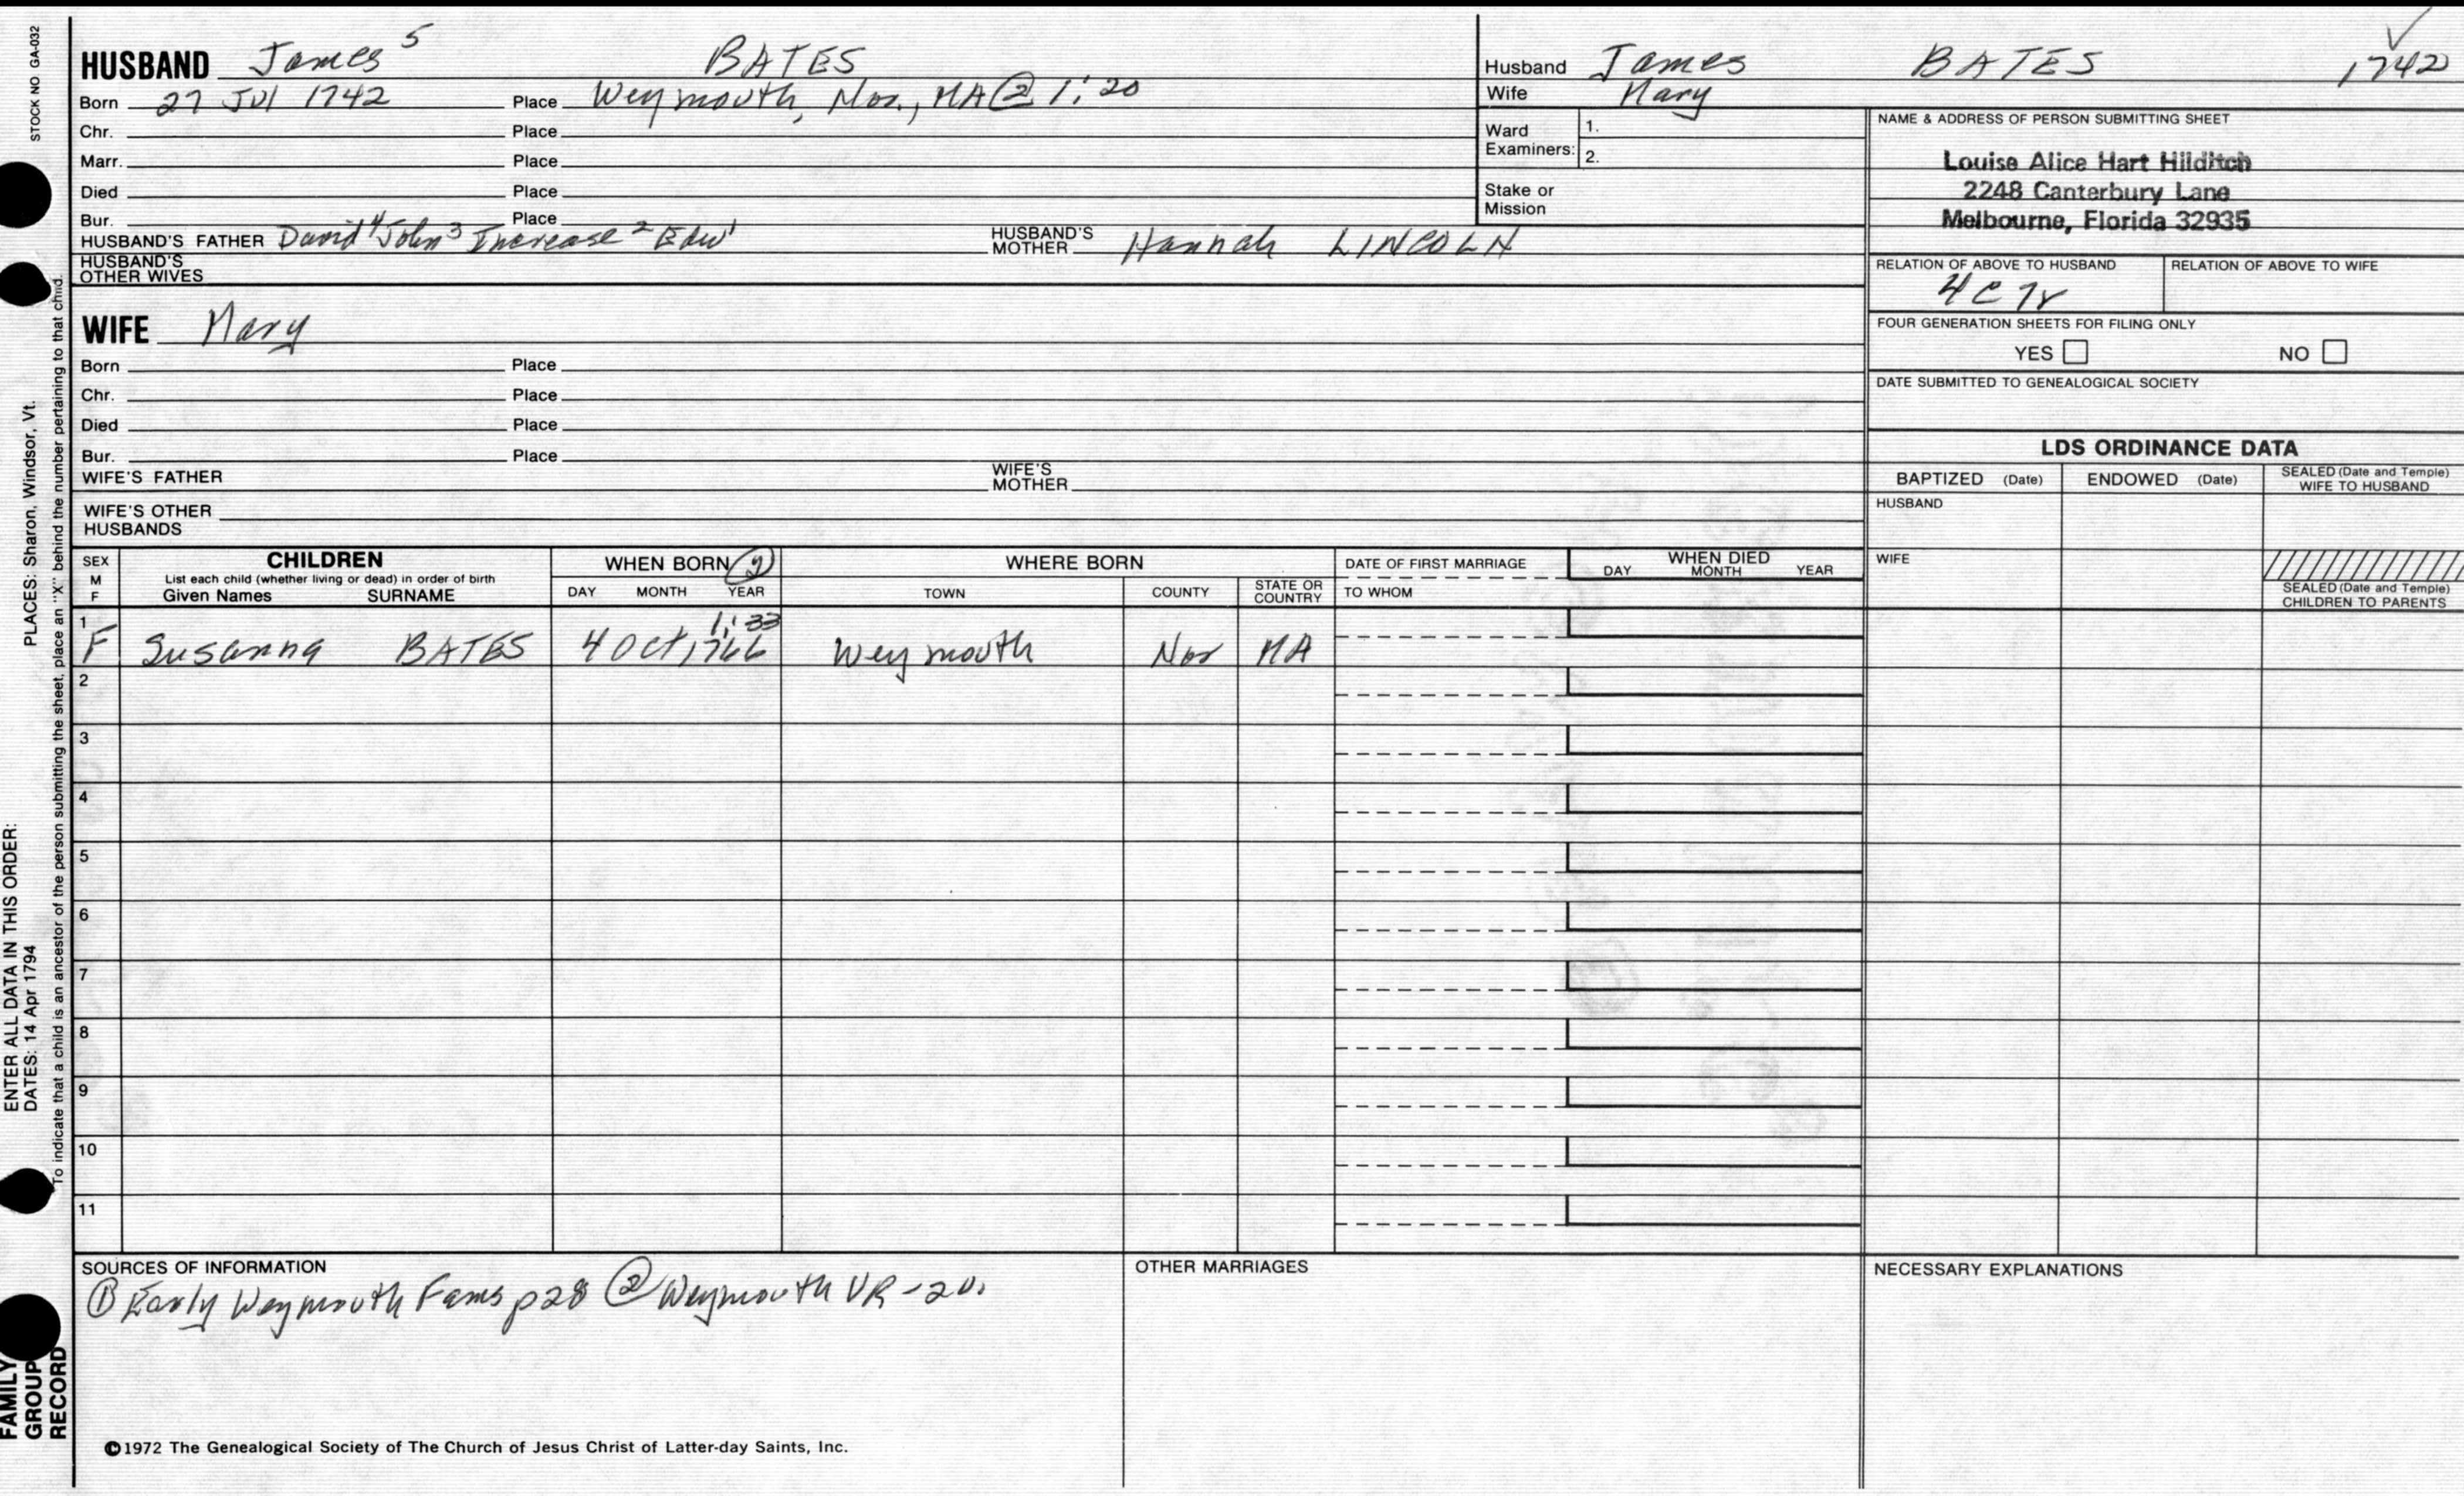 STOCK NO GA-032
HUSBAND James 5 BATES
Born 27 Jul 1742 Place Weymouth, Nor., MA ② 1:20
Chr. Place
Marr. Place
Died Place
Bur. Place
HUSBAND'S FATHER David 4 John 3 Increase 2 Edw 1 HUSBAND'S MOTHER Hannah LINCOLN
HUSBAND'S OTHER WIVES
Husband James BATES 1742
Wife Mary
Ward Examiners: 1.
2.
Stake or Mission
NAME & ADDRESS OF PERSON SUBMITTING SHEET
Louise Alice Hart Hilditch
2248 Canterbury Lane
Melbourne, Florida 32935
RELATION OF ABOVE TO HUSBAND RELATION OF ABOVE TO WIFE
4C7r
FOUR GENERATION SHEETS FOR FILING ONLY
YES NO
DATE SUBMITTED TO GENEALOGICAL SOCIETY
WIFE Mary
Born Place
Chr. Place
Died Place
Bur. Place
WIFE'S FATHER WIFE'S MOTHER
WIFE'S OTHER HUSBANDS
LDS ORDINANCE DATA
BAPTIZED (Date) ENDOWED (Date) SEALED (Date and Temple) WIFE TO HUSBAND
HUSBAND
WIFE
SEALED (Date and Temple) CHILDREN TO PARENTS
SEX M F
CHILDREN
List each child (whether living or dead) in order of birth
Given Names SURNAME
WHEN BORN ②
DAY MONTH YEAR
WHERE BORN
TOWN COUNTY STATE OR COUNTRY
DATE OF FIRST MARRIAGE
TO WHOM
WHEN DIED
DAY MONTH YEAR
1:33
1 F Susanna BATES 4 Oct 1766 Weymouth Nor MA
2
3
4
5
6
7
8
9
10
11
SOURCES OF INFORMATION
① Early Weymouth Fams p28 ② Weymouth VR - 2v.
OTHER MARRIAGES
NECESSARY EXPLANATIONS
©1972 The Genealogical Society of The Church of Jesus Christ of Latter-day Saints, Inc.
ENTER ALL DATA IN THIS ORDER:
DATES: 14 Apr 1794 PLACES: Sharon, Windsor, Vt.
To indicate that a child is an ancestor of the person submitting the sheet, place an "X" behind the number pertaining to that child.
FAMILY
GROUP
RECORD